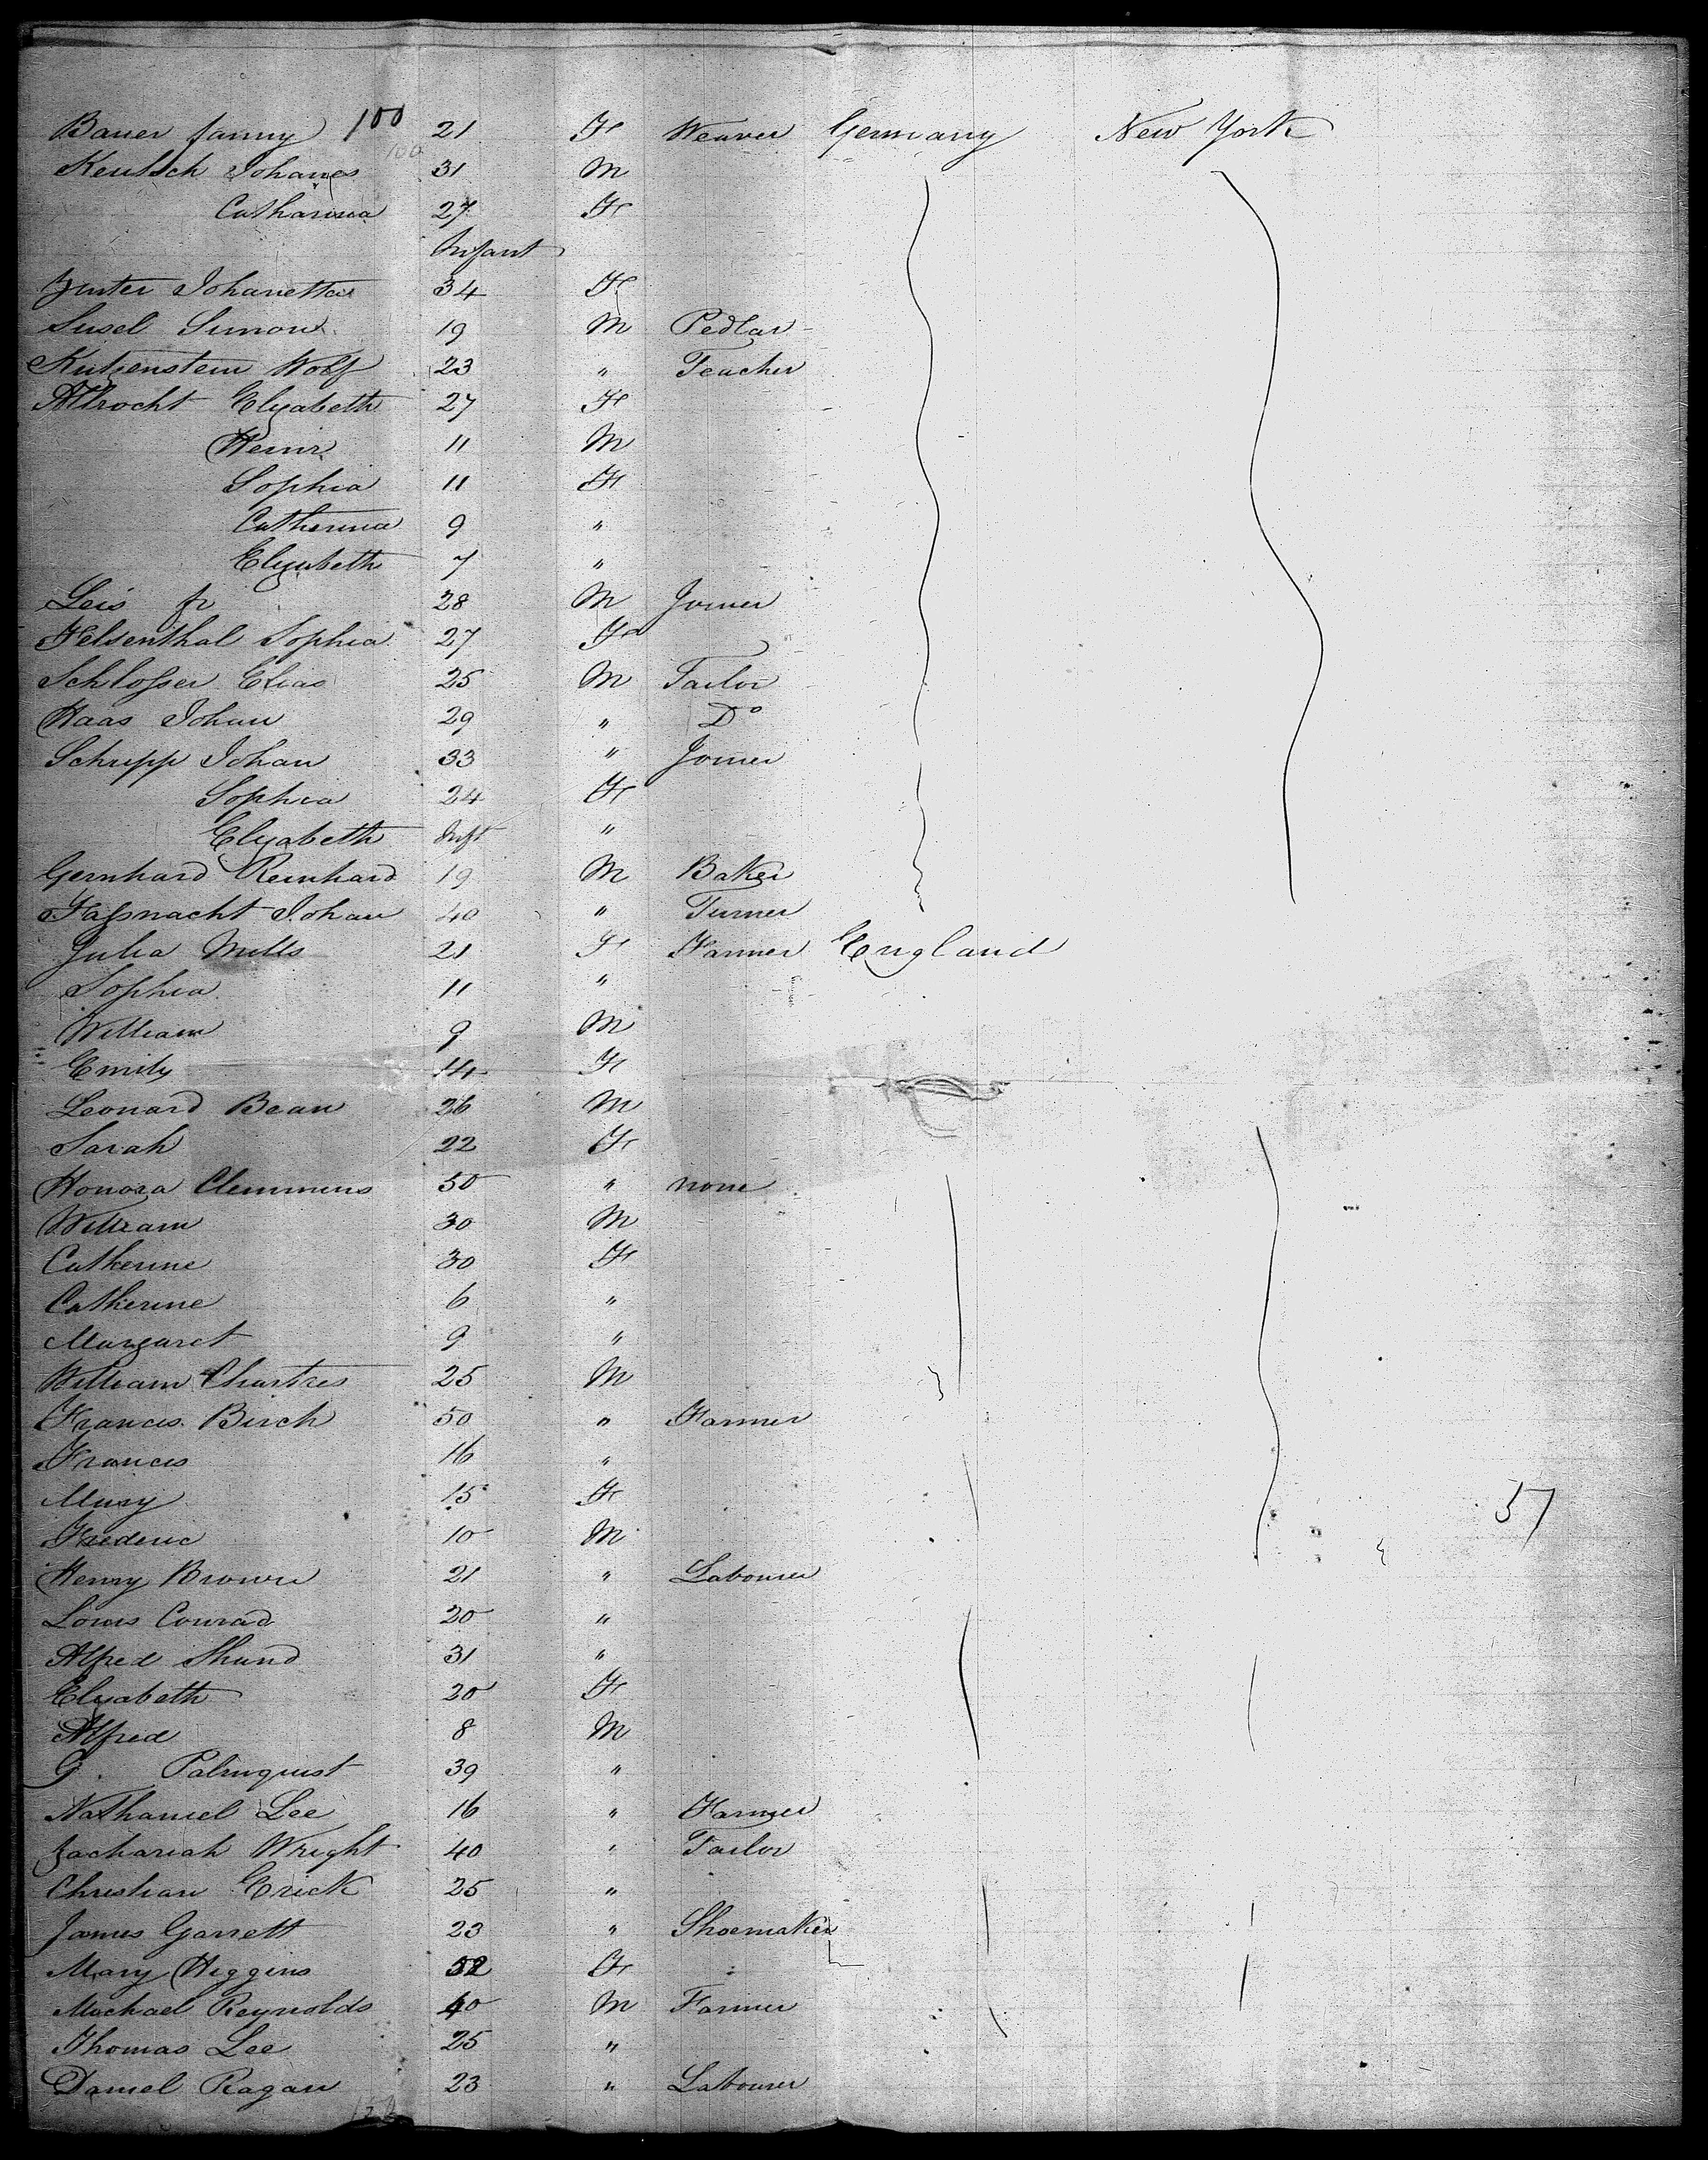 Bauer fanny 100 21 F Weaver Germany New York
100
Keutsch Johanes 31 M
Catharina 27 F
Infant
Johanetta 34 F
Susel Simon 19 M Pedlar
Katzenstein Wolf 23 " Teacher
Albrocht Elyabeth 27 F
Heinr 11 M
Sophia 11 F
Catherina 9 "
Elyabeth 7 "
Leis fr 28 M Joiner
Felsenthal Sophia 27 F
Schlosser Elias 25 M Tailor
Haas Johan 29 " Do
Schupp Johan 33 " Joiner
Sophia 24 F
Elyabeth Inft "
Gernhard Reinhard 19 M Baker
Fassnacht Johan 40 " Turner
Julia Mills 21 F Farmer England
Sophia 11 "
William 9 M
Emily 14 F
Leonard Bean 26 M
Sarah 22 F
Honora Clemmens 50 " none
William 30 M
Catherine 30 F
Catherine 6 "
Margaret 9 "
William Chartres 25 M
Francis Birch 50 " Farmer
Francis 16 "
Mary 15 F
57
Frederic 10 M
Henry Brown 21 " Labourer
Louis Conrad 20 "
Alfred Shund 31 "
Elyabeth 20 F
Alfred 8 M
G. Palmquist 39 "
Nathaniel Lee 16 " Farmer
Zachariah Wright 40 " Tailor
Christian Erick 25 "
James Garrett 23 " Shoemaker
Mary Higgins 52 F
Michael Reynolds 40 M Farmer
Thomas Lee 25 "
Daniel Ragan 23 " Labourer